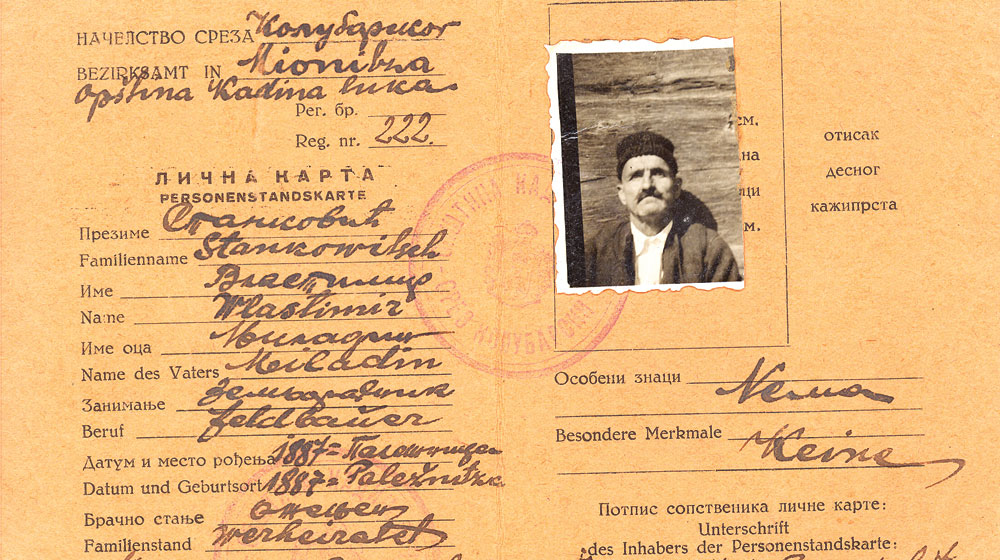 НАЧЕЛСТВО СРЕЗА Колубарског
BEZIRKSAMT IN Mionitza
Opština Kadina luka
Рег. бр.
Reg. nr. 222.
ЛИЧНА КАРТА
PERSONENSTANDSKARTE
Презиме Станковић
Familienname Stankowitsch
Име Властимир
Name Wlastimir
Име оца Миладин
Name des Vaters Meiladin
Занимање Земљорадник
Beruf feldbauer
Датум и место рођења 1887=
Datum und Geburtsort 1887= Paležnitza
Брачно стање ожењен
Familienstand werheiratet
см.
на
ци
м.
отисак
десног
кажипрста
Особени знаци Нема
Besondere Merkmale Keine
Потпис сопственика личне карте:
Unterschrift
des Inhabers der Personenstandskarte: